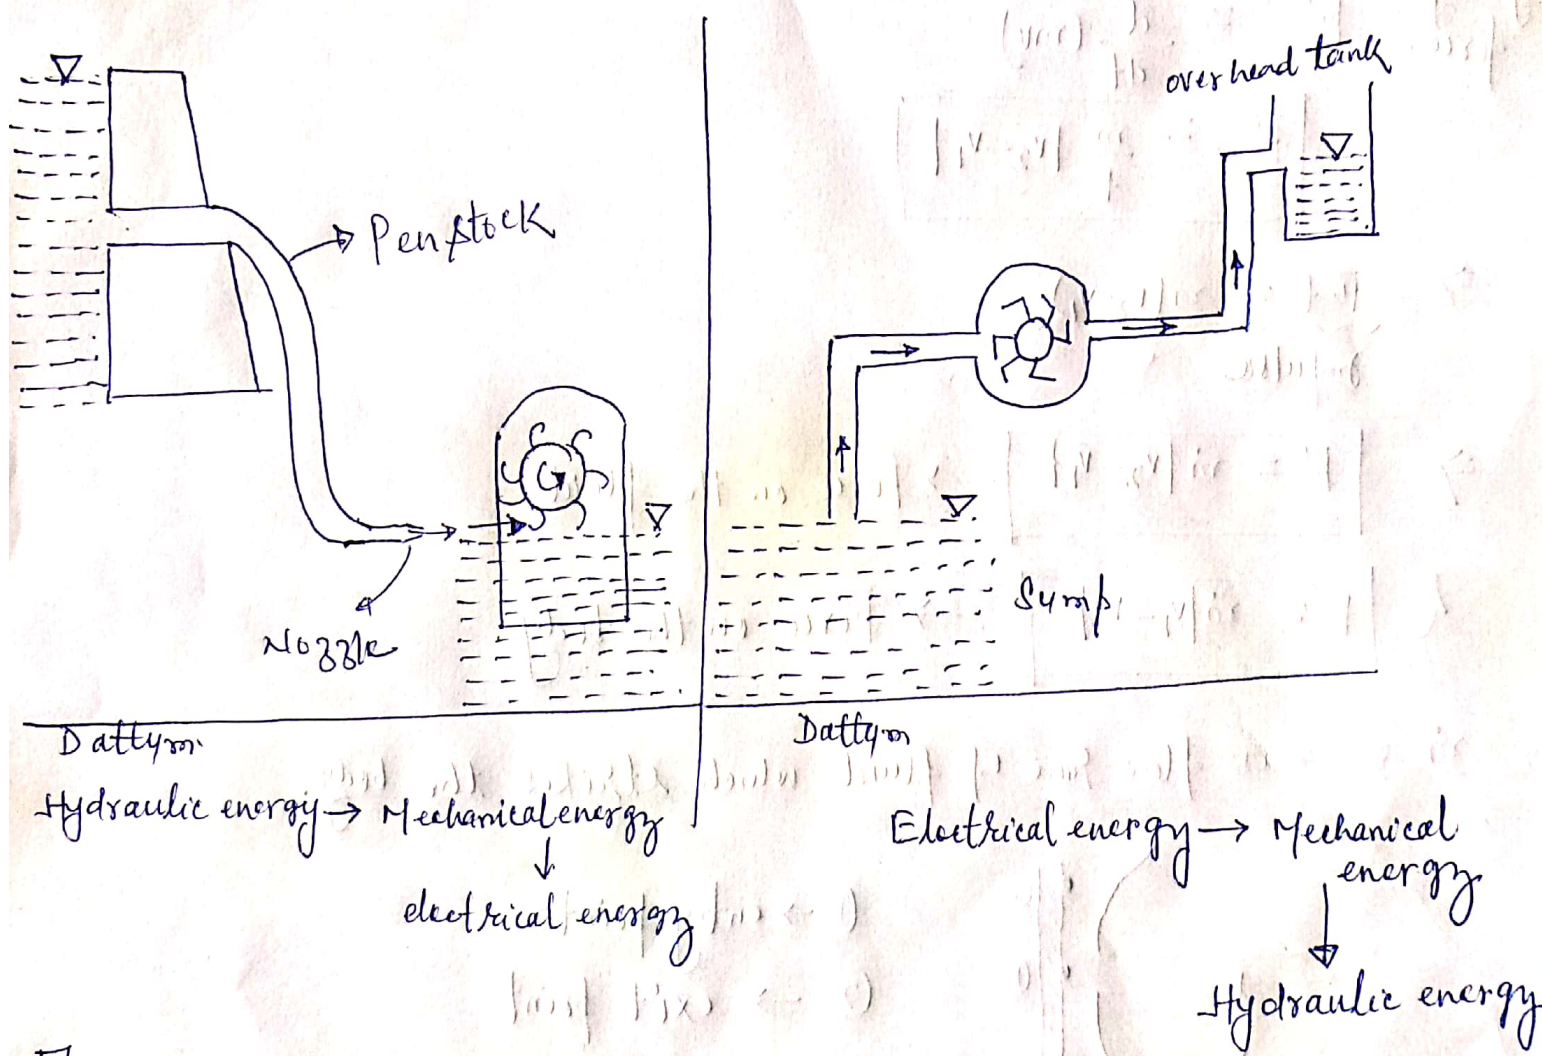 Penstock
Nozzle
Dattym.
Hydraulic energy → Mechanical energy
↓
electrical energy
overhead tank
Sump
Dattym
Electrical energy → Mechanical
energy
↓
Hydraulic energy